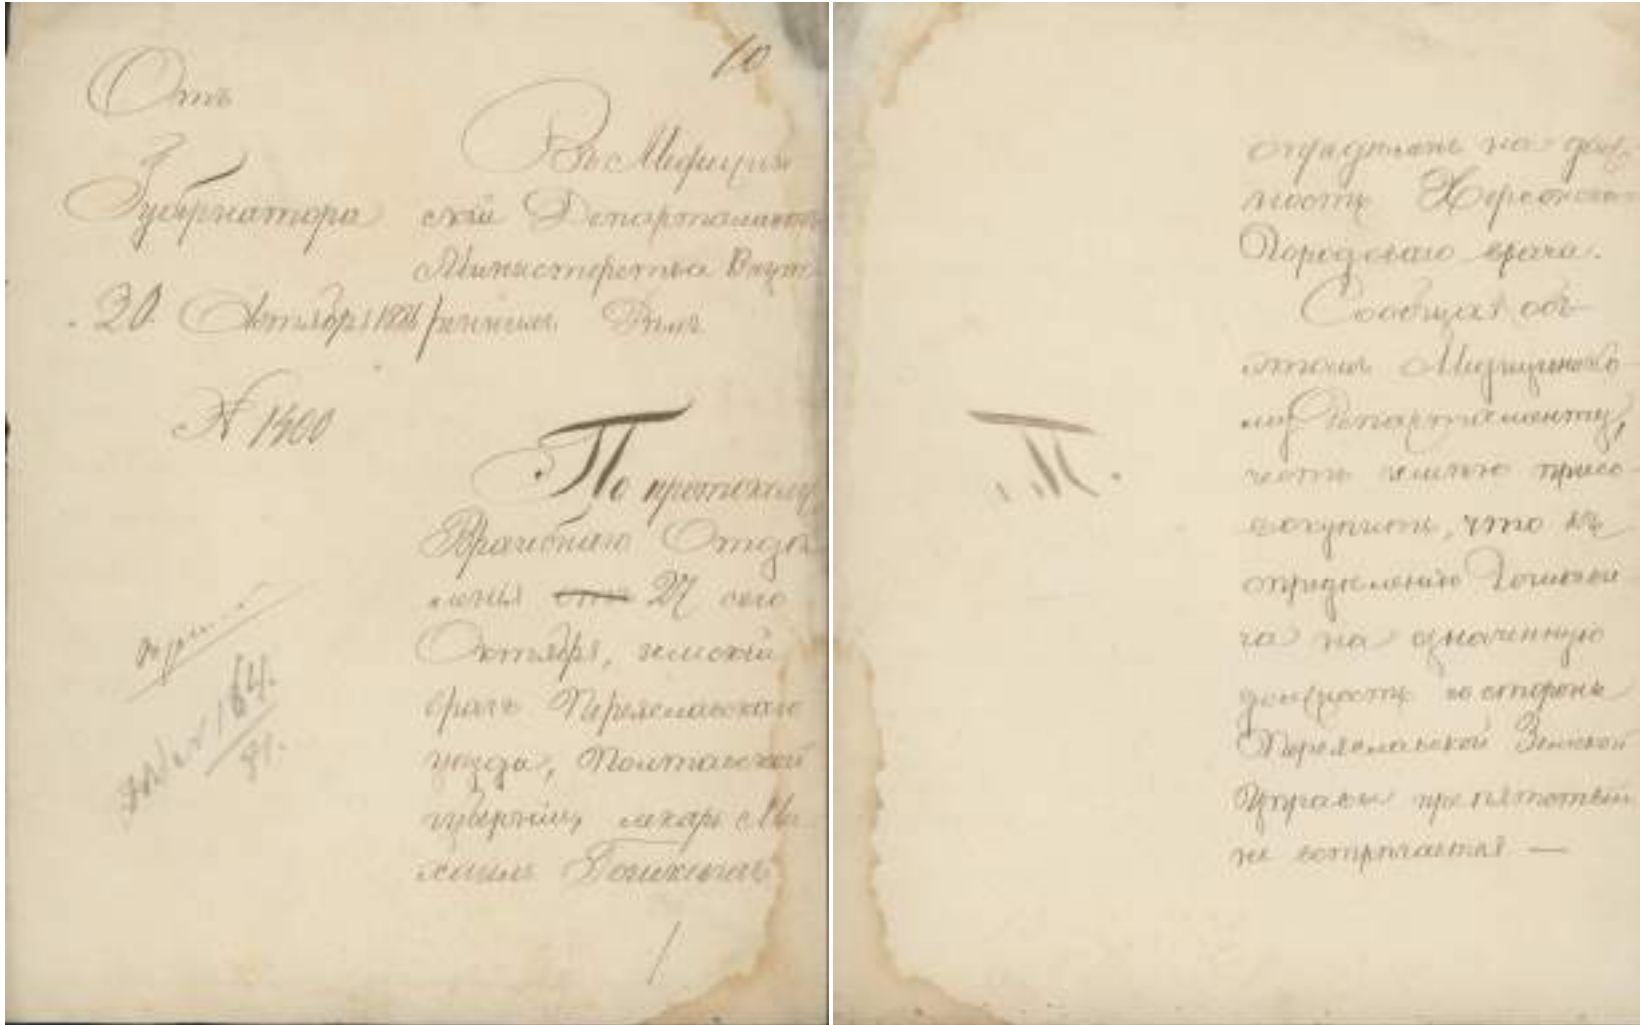 10
Отъ
Губернатора
30 Октября 1881
№ 1400
Въ Медицин
скій Департаментъ
Министерства Внут
реннихъ Дѣлъ
По протоколу
Врачебнаго Отдѣ
ленія 27 сего
Октября, земскій
врачъ Переяславскаго
уѣзда, Полтавской
губерніи, лекарь Ми
хаилъ
опредѣленъ на долж
ность Херсонскаго
Городоваго врача.
Сообщая объ
этомъ Медицинско
му Департаменту,
честь имѣю присо
вокупить, что къ
опредѣленію
на означенную
должность со стороны
Переяславской Земской
Управы препятствій
не встрѣчается —